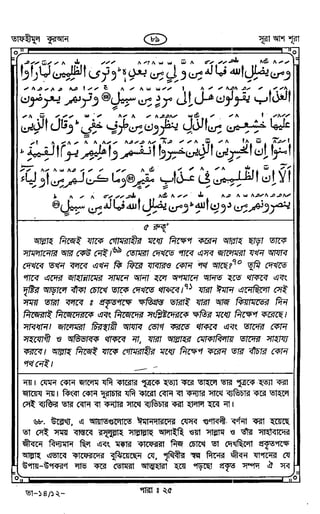 তাফহীমুল কুরআন
৮৯
সূরা আশ শূরা
وَمَنْ يُّضْلِلِ اللهُ فَمَا لَهٗ مِنْ وَّلِيٍّ مِّنْۢ بَعْدِهٖ ؕ وَتَرَى الظّٰلِمِيْنَ لَمَّا رَاَوُا
الْعَذَابَ يَقُوْلُوْنَ هَلْ اِلٰى مَرَدٍّ مِّنْ سَبِيْلٍ ۞ وَتَرٰىهُمْ يُعْرَضُوْنَ
عَلَيْهَا خٰشِعِيْنَ مِنَ الذُّلِّ يَنْظُرُوْنَ مِنْ طَرْفٍ خَفِيٍّ ؕ وَقَالَ الَّذِيْنَ
اٰمَنُوْۤا اِنَّ الْخٰسِرِيْنَ الَّذِيْنَ خَسِرُوْۤا اَنْفُسَهُمْ وَاَهْلِيْهِمْ يَوْمَ الْقِيٰمَةِ ؕ
اَلَاۤ اِنَّ الظّٰلِمِيْنَ فِيْ عَذَابٍ مُّقِيْمٍ ۞ وَمَا كَانَ لَهُمْ مِّنْ اَوْلِيَآءَ
يَنْصُرُوْنَهُمْ مِّنْ دُوْنِ اللهِ ؕ وَمَنْ يُّضْلِلِ اللهُ فَمَا لَهٗ مِنْ سَبِيْلٍ ۞
৫ রুকূ'
আল্লাহ নিজেই যাকে গোমরাহীর মধ্যে নিক্ষেপ করেন আল্লাহ ছাড়া তাকে
সামলানোর আর কেউ নেই।৬৯ তোমরা দেখতে পাবে এসব জালেমরা যখন আযাব
দেখবে তখন বলবে এখন কি ফিরে যাবারও কোন পথ আছে?৭০ তুমি দেখতে
পাবে এদের জাহান্নামের সামনে আনা হলে অপমানে আনত হতে থাকবে এবং
দৃষ্টির আড়ালে বাঁকা চোখে তাকে দেখতে থাকবে।৭১ যারা ঈমান এনেছিলো সেই
সময় তারা বলবে ঃ প্রকৃতপক্ষে ক্ষতিগ্রস্ত তারাই যারা আজ কিয়ামতের দিন
নিজেরাই নিজেদেরকে এবং নিজেদের সংশ্লিষ্টদেরকে ক্ষতির মধ্যে নিক্ষেপ করেছে।
সাবধান! জালেমরা চিরস্থায়ী আযাব ভোগ করতে থাকবে এবং তাদের কোন
সহযোগী ও অভিভাবক থাকবে না, যারা আল্লাহর মোকাবিলায় তাদের সাহায্য
করবে। আল্লাহ নিজেই যাকে গোমরাহীর মধ্যে নিক্ষেপ করেন তার বাঁচার কোন
পথ নেই।
নয়। যেমন কোন জালেম যদি কারোর পুত্রকে হত্যা করে তাহলে তার পুত্রকে হত্যা করা
জায়েয নয়। কিংবা কোন দুরাচার যদি কারো বোন বা কন্যার সাথে ব্যভিচার করে তাহলে
সেই ব্যক্তির তার বোন বা কন্যার সাথে ব্যভিচার করা হালাল হবে না।
৬৮. উল্লেখ্য, এ আয়াতগুলোতে ঈমানদারদের যেসব গুণাবলী বর্ণনা করা হয়েছে
তা সেই সময় বাস্তবে রসূলুল্লাহ সাল্লাল্লাহু আলাইহি ওয়া সাল্লাম ও তাঁর সাহাবাদের
জীবনে বিদ্যমান ছিল এবং মক্কার কাফেররা নিজ চোখে তা দেখছিলো। প্রকৃতপক্ষে
আল্লাহ এভাবে কাফেরদের বুঝিয়েছেন যে, পৃথিবীর স্বল্প দিনের জীবন যাপনের যে
উপায়-উপকরণ লাভ করে তোমরা আত্মহারা হয়ে পড়ছো প্রকৃত সম্পদ ঐ সব
তা-১৪/১২-
পারা ঃ ২৫